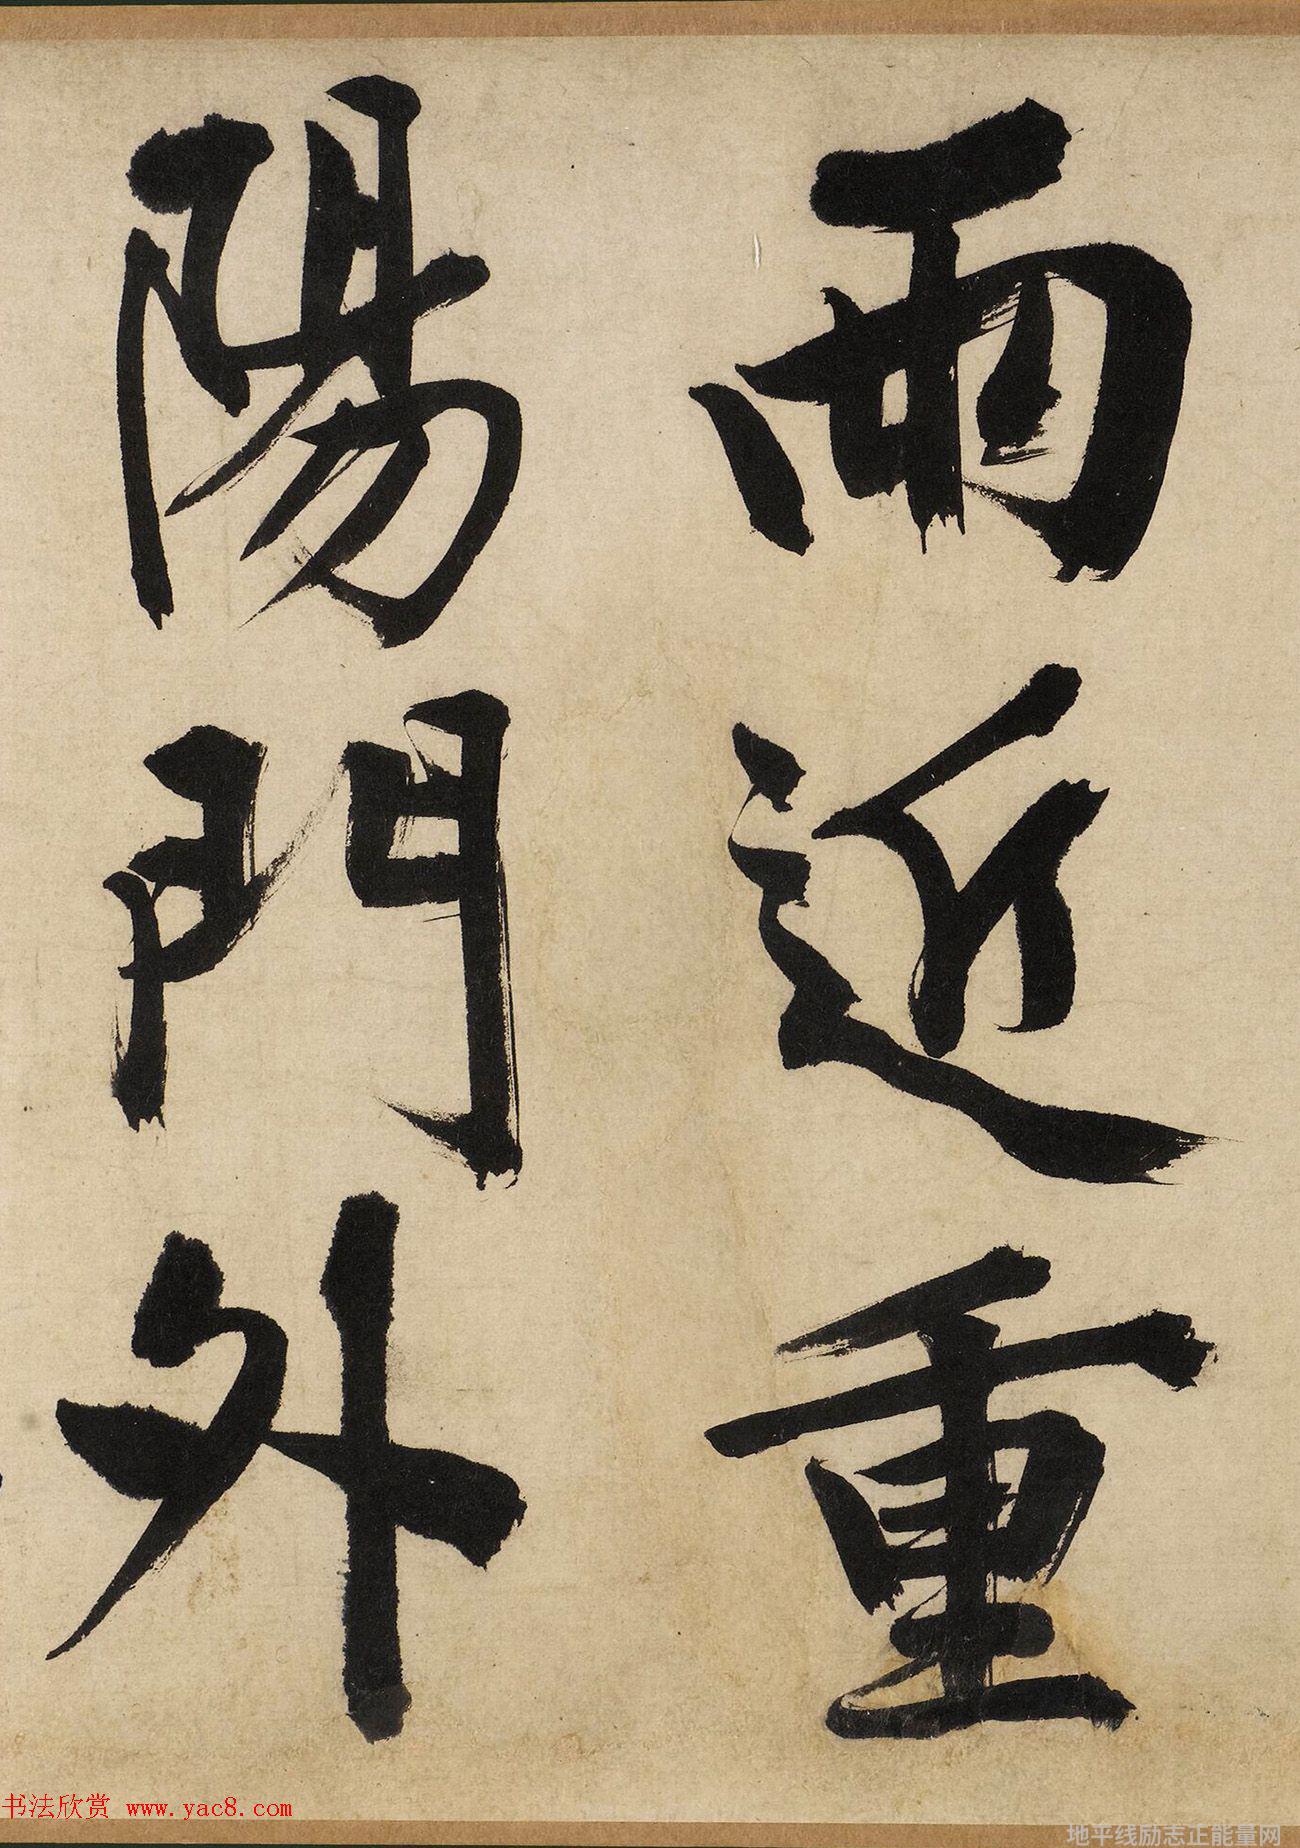 雨近重
陽門外
书法欣赏 www.yac8.com
地平线励志正能量网